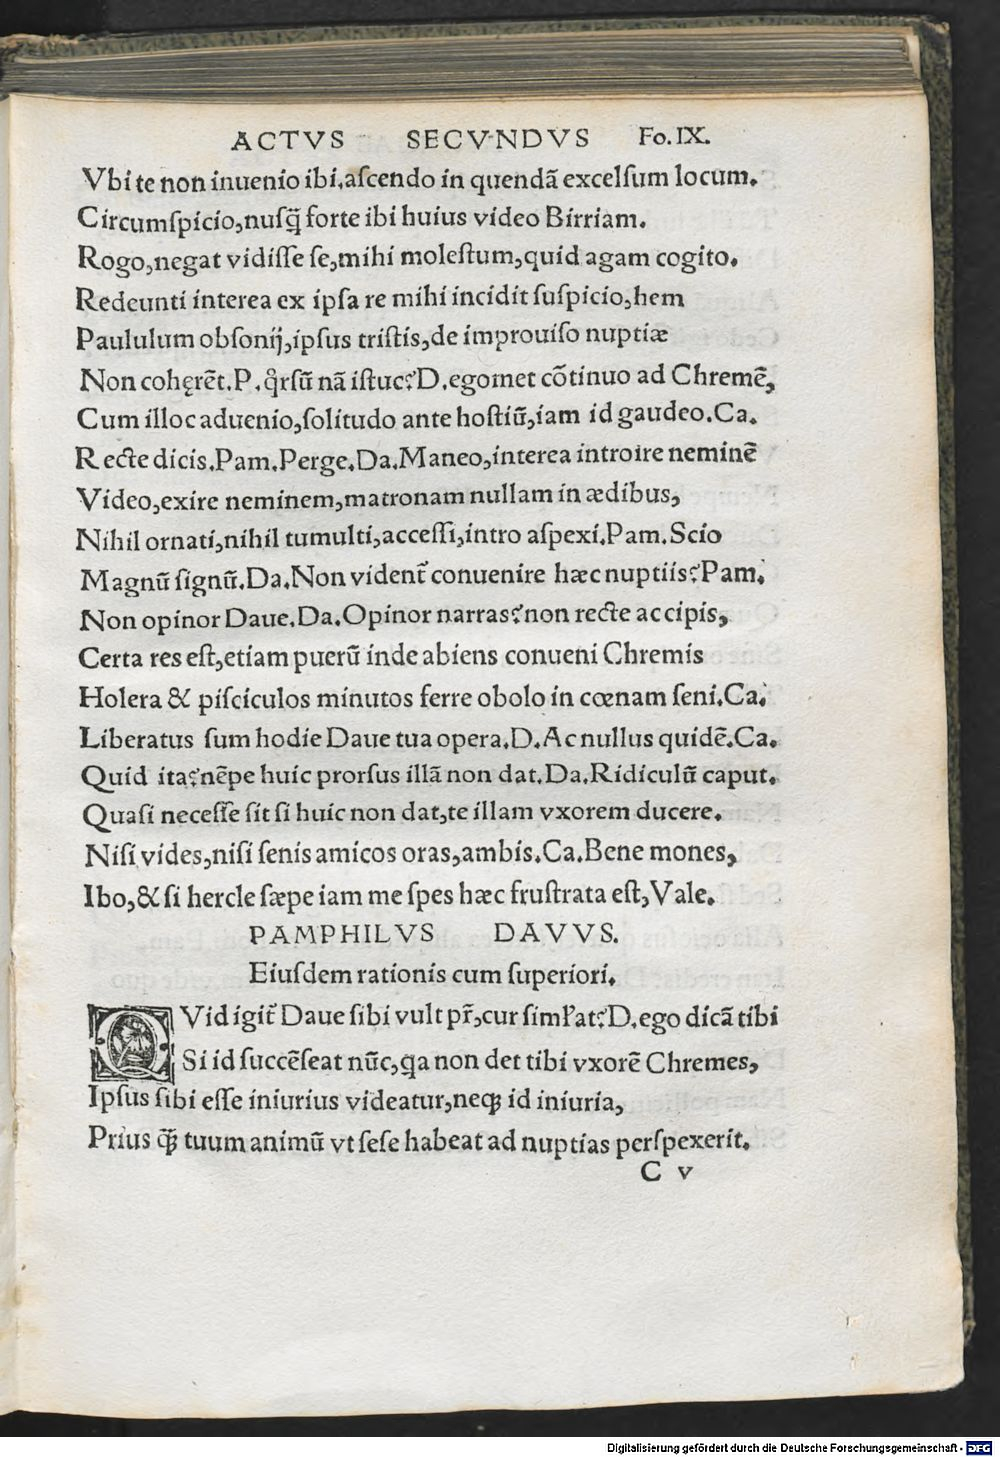 ACTVS SECVNDVS Fo.IX.
Vbi te non inuenio ibi,aſcendo in quendã excelſum locum.
Circumſpicio,nuſq̃ forte ibi huius video Birriam.
Rogo,negat vidiſſe ſe,mihi moleſtum,quid agam cogito.
Redeunti interea ex ipſa re mihi incidit ſuſpicio,hem
Paululum obſonij,ipſus triſtis,de improuiſo nuptiæ
Non cohęrẽt.P.q̊rſũ nã iſtuc?D.egomet cõtinuo ad Chremẽ,
Cum illoc aduenio,ſolitudo ante hoſtiũ,iam id gaudeo.Ca.
Recte dicis.Pam.Perge.Da.Maneo,interea introire neminẽ
Video,exire neminem,matronam nullam in ædibus,
Nihil ornati,nihil tumulti,acceſſi,intro aſpexi.Pam.Scio
Magnũ ſignũ.Da.Non vident̃ conuenire hæc nuptiis?Pam.
Non opinor Daue.Da.Opinor narras?non recte accipis,
Certa res eſt,etiam puerũ inde abiens conueni Chremis
Holera & piſciculos minutos ferre obolo in cœnam ſeni.Ca.
Liberatus ſum hodie Daue tua opera.D.Ac nullus quidẽ.Ca.
Quid ita?nẽpe huic prorſus illã non dat.Da.Ridiculũ caput.
Quaſi neceſſe ſit ſi huic non dat,te illam vxorem ducere.
Niſi vides,niſi ſenis amicos oras,ambis.Ca.Bene mones,
Ibo,& ſi hercle ſæpe iam me ſpes hæc fruſtrata eſt,Vale.
PAMPHILVS DAVVS.
Eiuſdem rationis cum ſuperiori.
QVid igit̃ Daue ſibi vult pr̃,cur ſimƚat?D.ego dicã tibi
Si id ſuccẽſeat nũc,qa non det tibi vxorẽ Chremes,
Ipſus ſibi eſſe iniurius videatur,neqꝫ id iniuria,
Prius q̃ꝫ tuum animũ vt ſeſe habeat ad nuptias perſpexerit.
C v
Digitalisierung gefördert durch die Deutsche Forschungsgemeinschaft - DFG